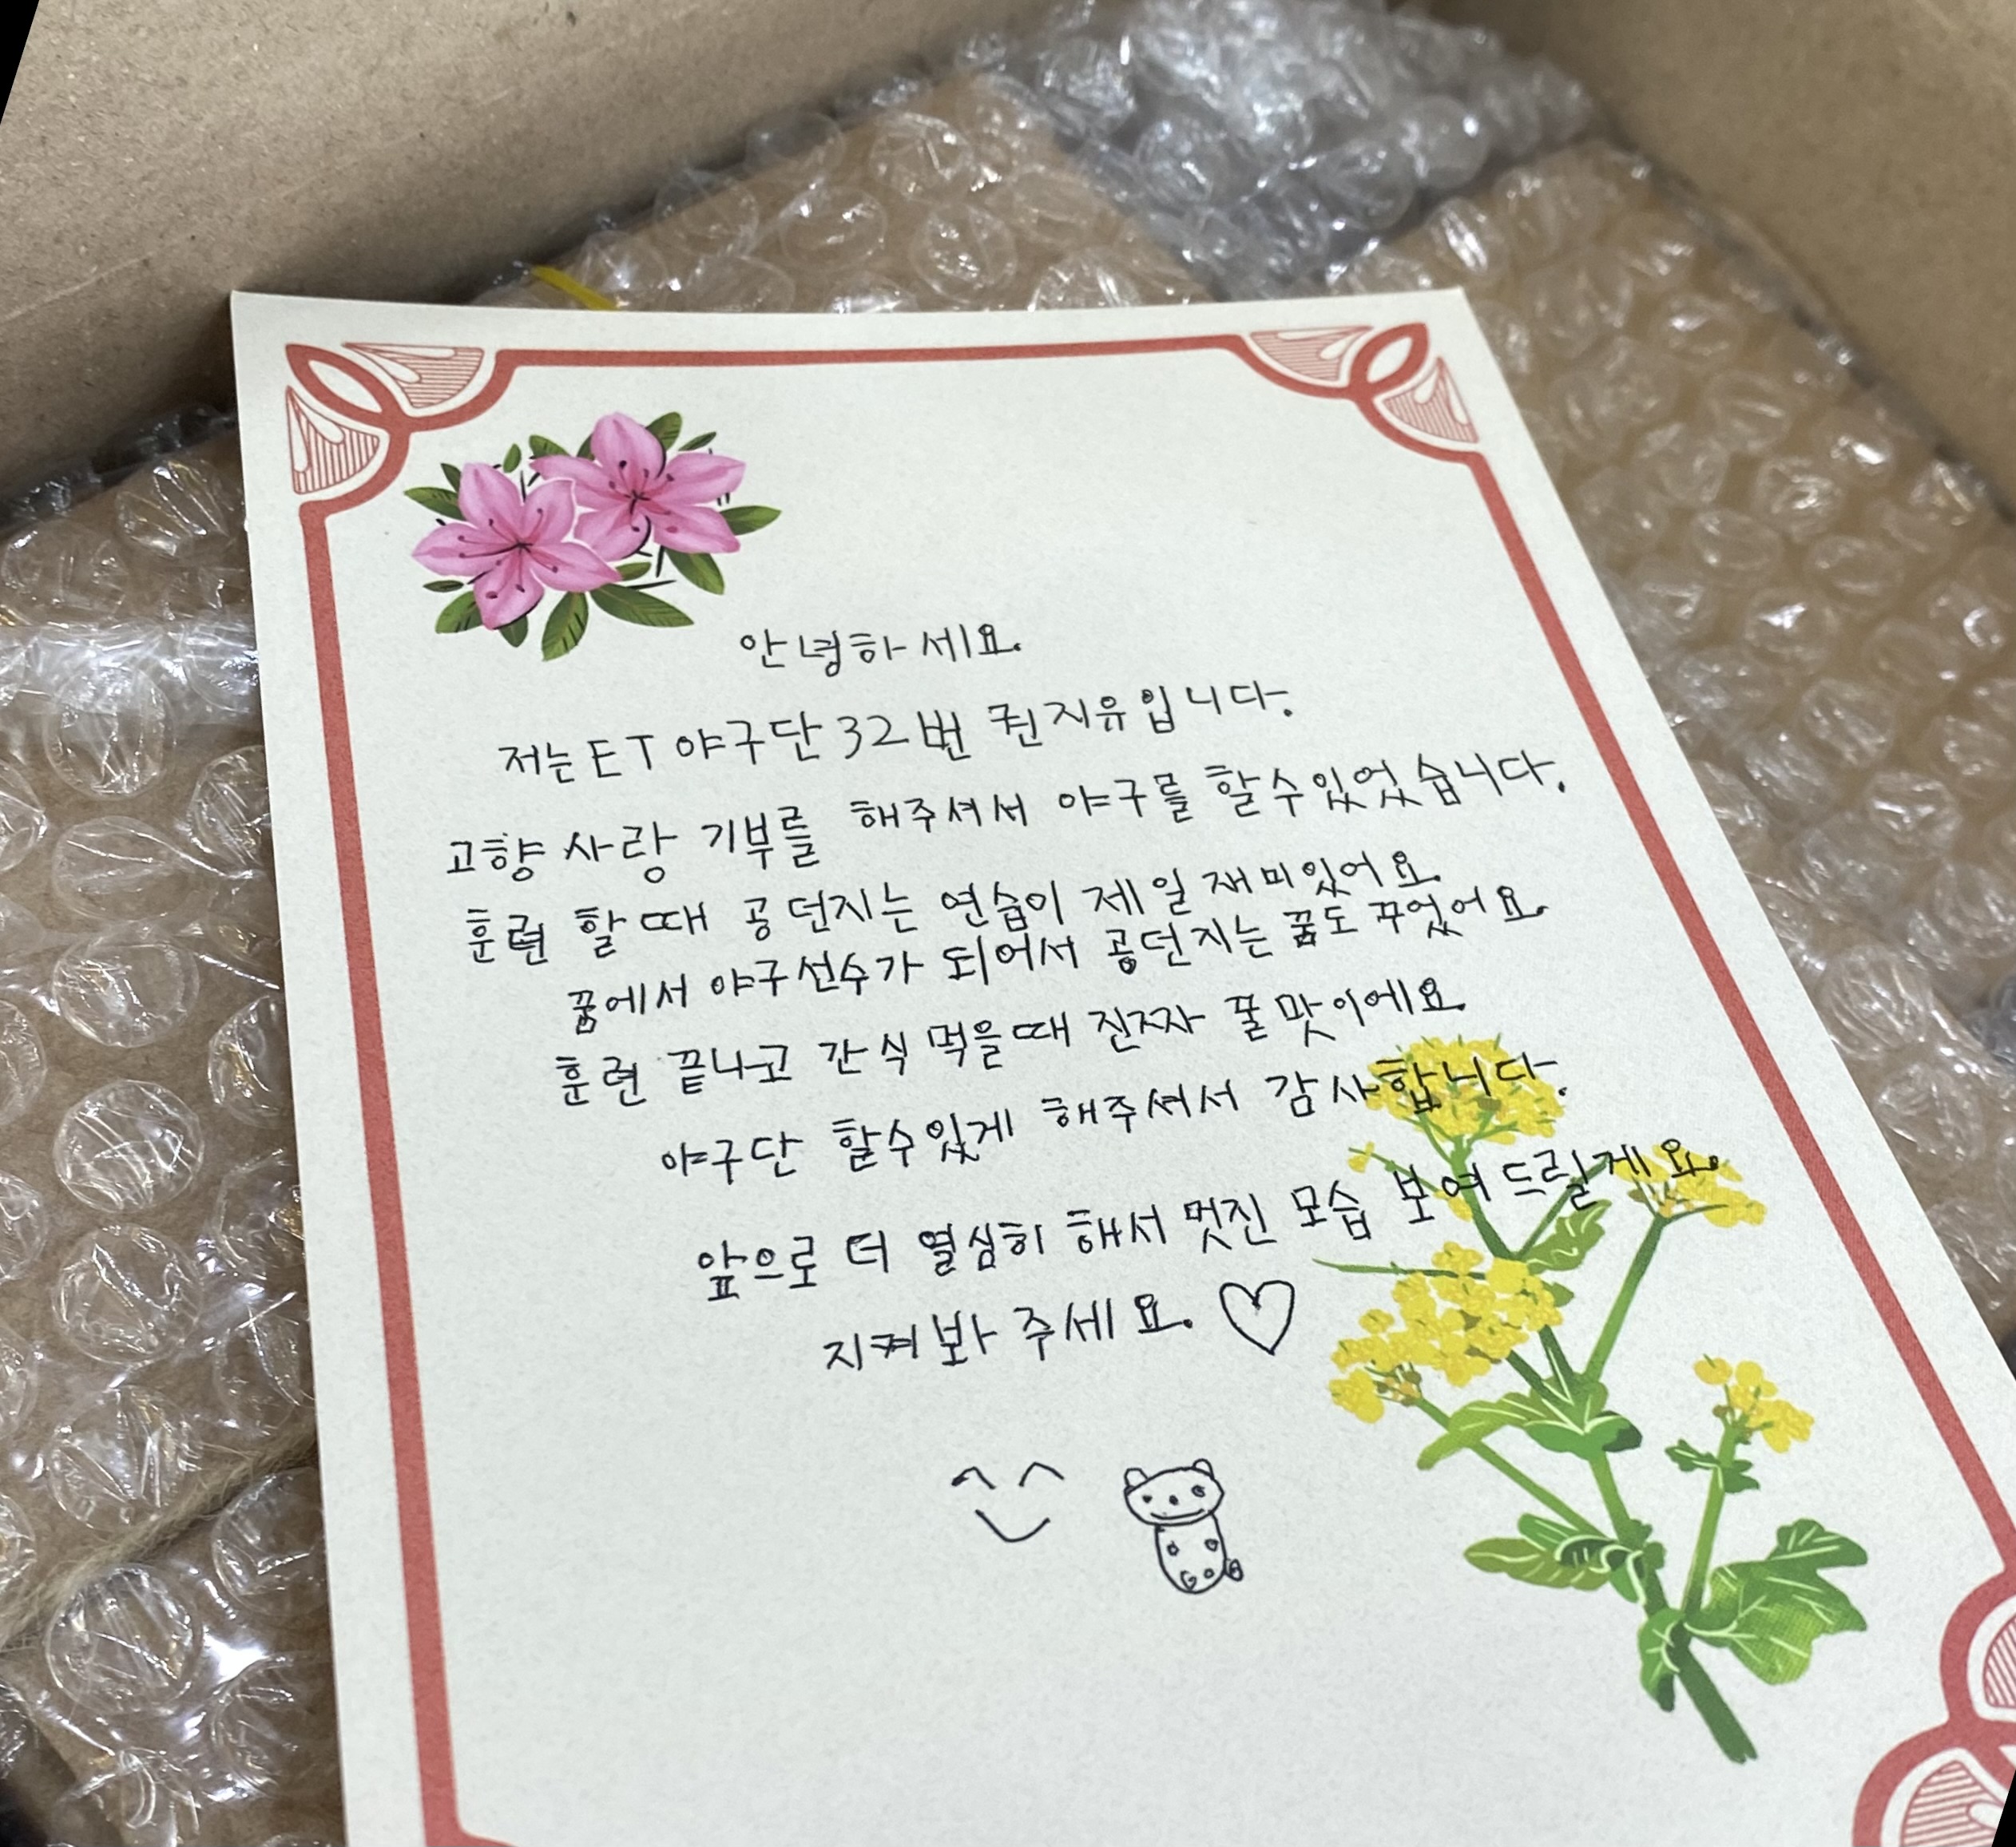 안녕하세요.
저는 ET 야구단 32번 권지유입니다.
고향 사랑 기부를 해주셔서 야구를 할수있었습니다.
훈련 할때 공던지는 연습이 제일 재미있어요.
꿈에서 야구선수가 되어서 공던지는 꿈도 꾸었어요.
훈련 끝나고 간식 먹을때 진짜 꿀맛이에요.
야구단 할수있게 해주셔서 감사합니다.
앞으로 더 열심히 해서 멋진 모습 보여드릴게요.
지켜봐 주세요.